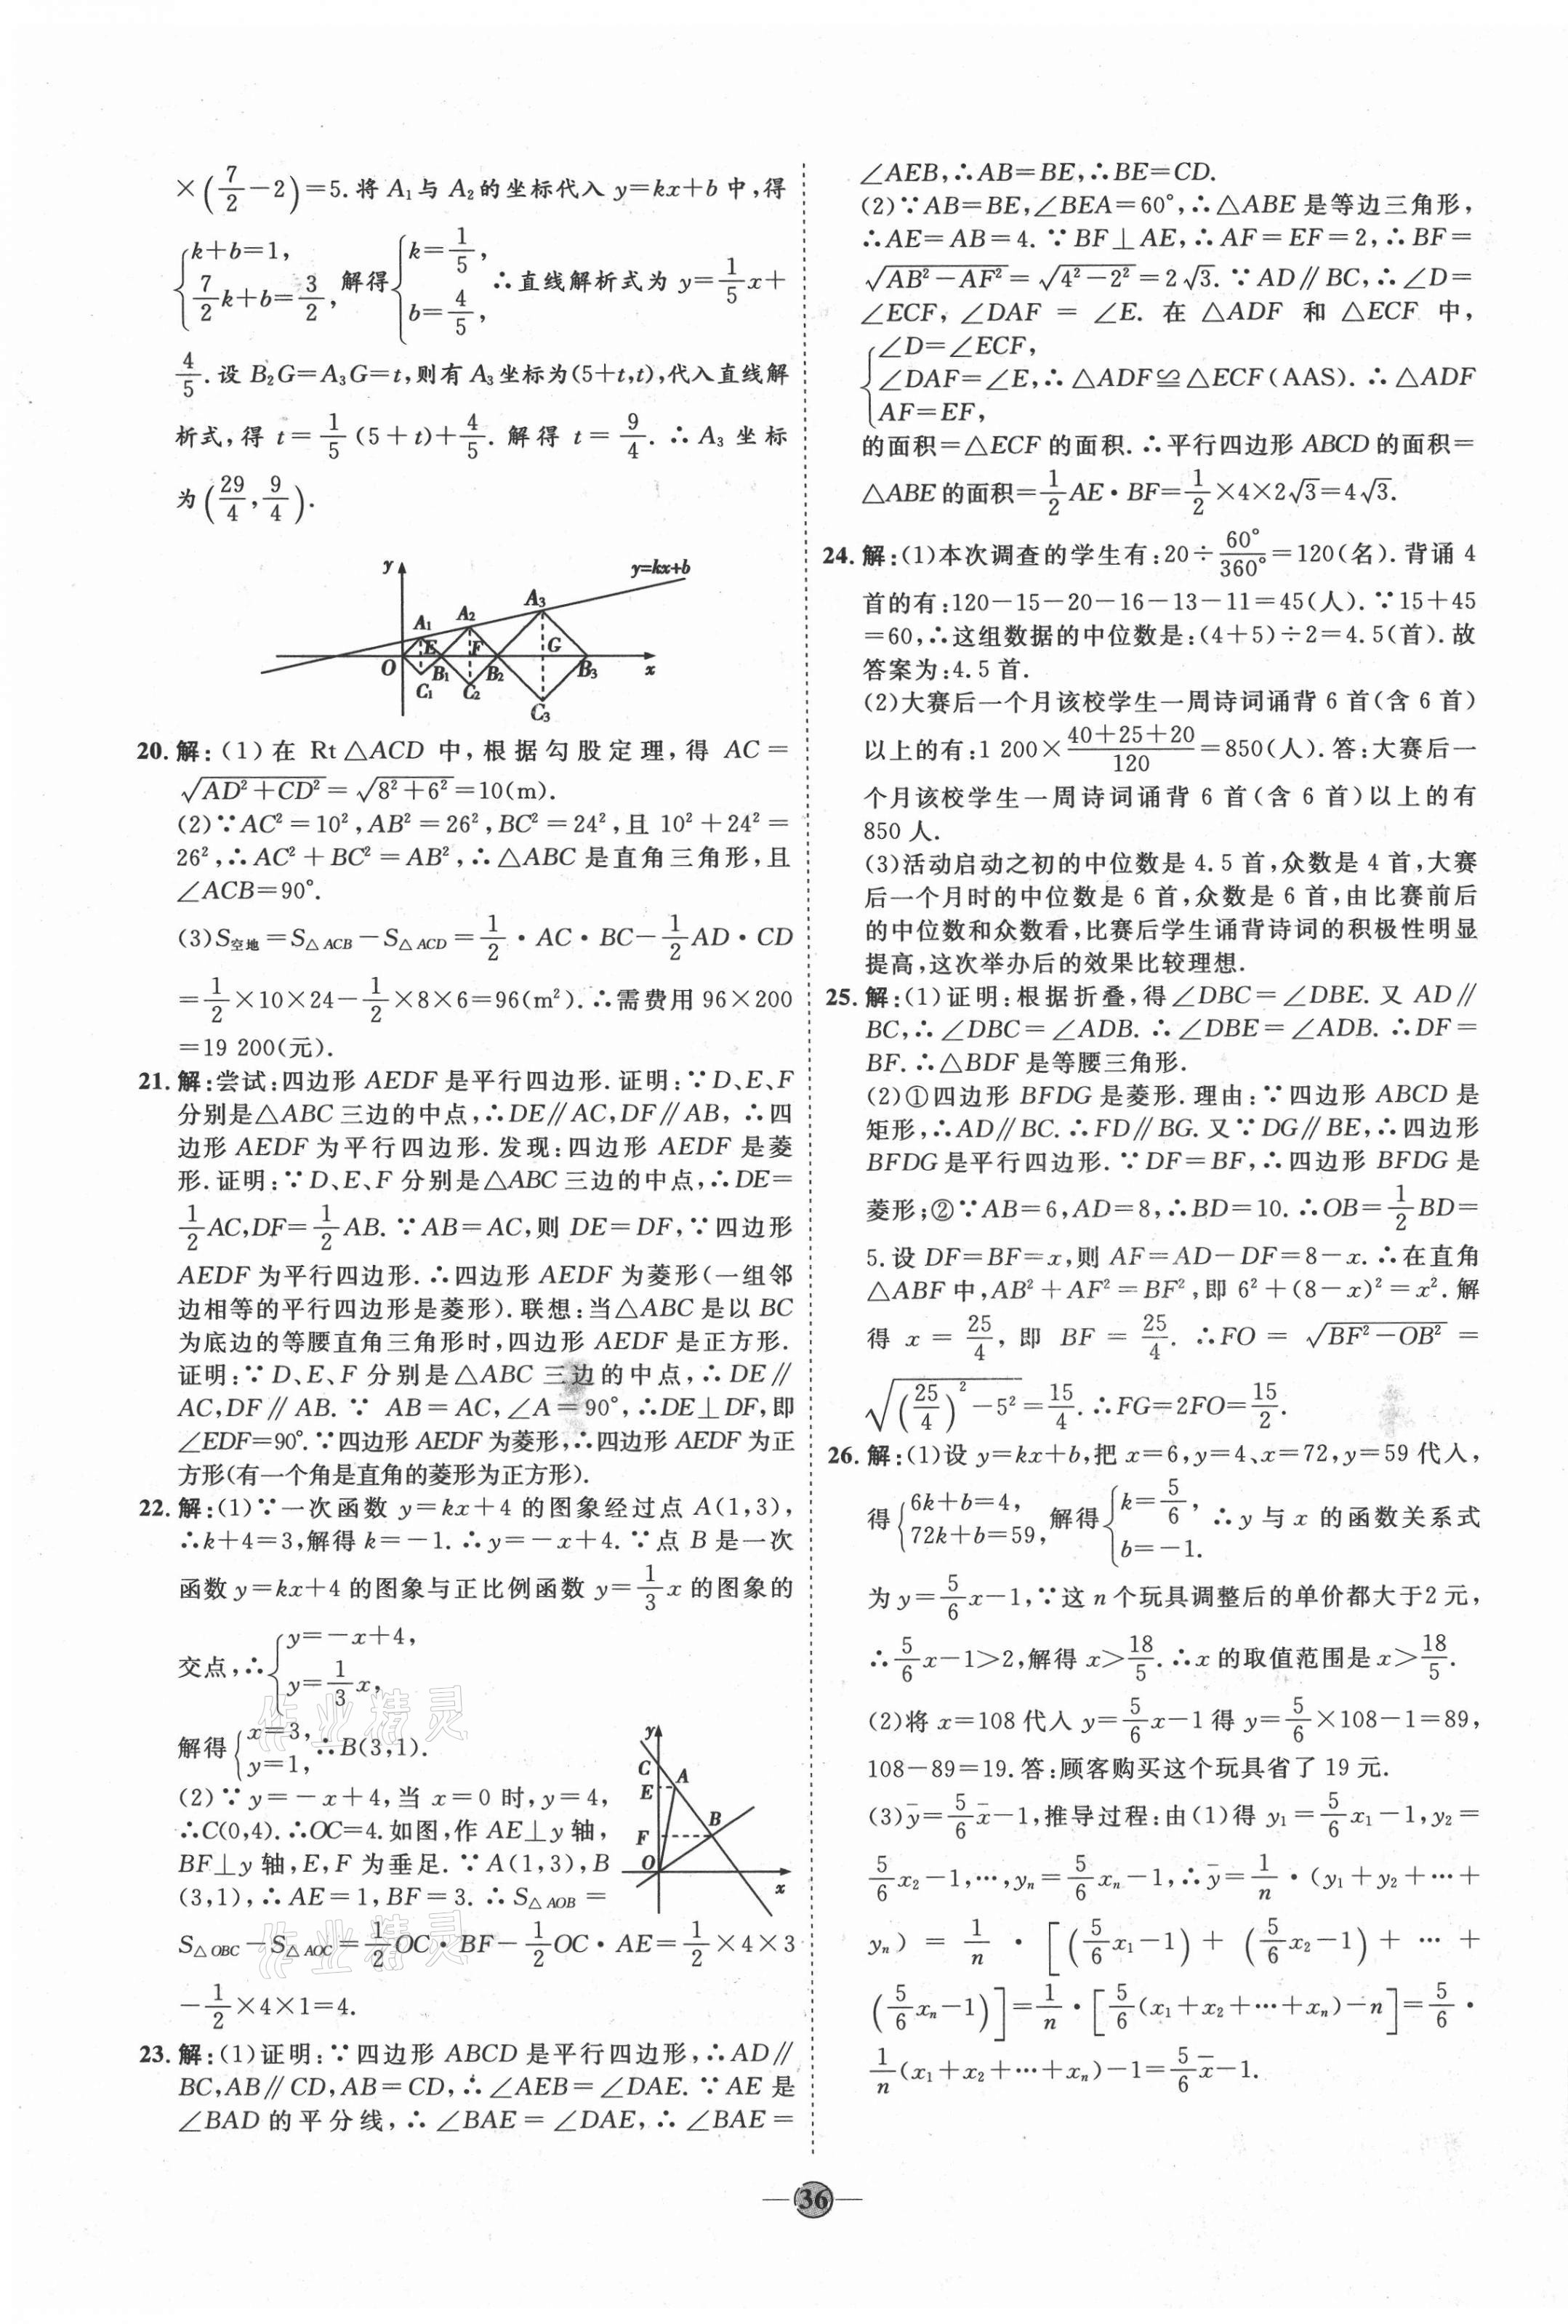 ×(7/2−2)=5.将 A₁与 A₂的坐标代入 y=kx+b 中,得
{k+b=1, 7/2k+b=3/2, 解得{k=1/5, b=4/5, ∴直线解析式为 y=1/5x+
4/5.设 B₂G=A₃G=t,则有 A₃坐标为(5+t,t),代入直线解
析式,得 t=1/5(5+t)+4/5. 解得 t=9/4. ∴A₃坐标
为(29/4,9/4).
y
y=kx+b
A₁ A₂ A₃
E F G
O B₁ B₂ B₃ x
C₁ C₂
C₃
20.解:(1)在 Rt△ACD 中,根据勾股定理,得 AC=
√(AD²+CD²)=√(8²+6²)=10(m).
(2)∵AC²=10²,AB²=26²,BC²=24²,且 10²+24²=
26²,∴AC²+BC²=AB²,∴△ABC 是直角三角形,且
∠ACB=90°.
(3)S空地=S△ACB−S△ACD=1/2·AC·BC−1/2AD·CD
=1/2×10×24−1/2×8×6=96(m²).∴需费用 96×200
=19 200(元).
21.解:尝试:四边形 AEDF 是平行四边形.证明:∵D、E、F
分别是△ABC 三边的中点,∴DE∥AC,DF∥AB, ∴四
边形 AEDF 为平行四边形.发现:四边形 AEDF 是菱
形.证明:∵D、E、F 分别是△ABC 三边的中点,∴DE=
1/2AC,DF=1/2AB.∵AB=AC,则 DE=DF,∵四边形
AEDF 为平行四边形.∴四边形 AEDF 为菱形(一组邻
边相等的平行四边形是菱形).联想:当△ABC 是以 BC
为底边的等腰直角三角形时,四边形 AEDF 是正方形.
证明:∵D、E、F 分别是△ABC 三边的中点,∴DE∥
AC,DF∥AB. ∵ AB=AC,∠A=90°,∴DE⊥DF,即
∠EDF=90°.∵四边形 AEDF 为菱形,∴四边形 AEDF 为正
方形(有一个角是直角的菱形为正方形).
22.解:(1)∵一次函数 y=kx+4 的图象经过点 A(1,3),
∴k+4=3,解得 k=−1.∴y=−x+4.∵点 B 是一次
函数 y=kx+4 的图象与正比例函数 y=1/3x 的图象的
交点,∴{y=−x+4, y=1/3x,
解得{x=3, y=1, ∴B(3,1).
(2)∵y=−x+4,当 x=0 时,y=4,
∴C(0,4).∴OC=4.如图,作 AE⊥y 轴,
BF⊥y 轴,E,F 为垂足.∵A(1,3),B
(3,1),∴AE=1,BF=3.∴S△AOB=
S△OBC−S△AOC=1/2OC·BF−1/2OC·AE=1/2×4×3
−1/2×4×1=4.
y
C A
E
B
F
O
x
作业精灵
作业精灵
23.解:(1)证明:∵四边形 ABCD 是平行四边形,∴AD∥
BC,AB∥CD,AB=CD,∴∠AEB=∠DAE.∵AE 是
∠BAD 的平分线,∴∠BAE=∠DAE,∴∠BAE=
∠AEB,∴AB=BE,∴BE=CD.
(2)∵AB=BE,∠BEA=60°,∴△ABE 是等边三角形,
∴AE=AB=4.∵BF⊥AE,∴AF=EF=2,∴BF=
√(AB²−AF²)=√(4²−2²)=2√3.∵AD∥BC,∴∠D=
∠ECF,∠DAF=∠E.在△ADF 和△ECF 中,
{∠D=∠ECF,
∠DAF=∠E,∴△ADF≌△ECF(AAS).∴△ADF
AF=EF,
的面积=△ECF 的面积.∴平行四边形 ABCD 的面积=
△ABE 的面积=1/2AE·BF=1/2×4×2√3=4√3.
24.解:(1)本次调查的学生有:20÷60°/360°=120(名).背诵 4
首的有:120−15−20−16−13−11=45(人).∵15+45
=60,∴这组数据的中位数是:(4+5)÷2=4.5(首).故
答案为:4.5 首.
(2)大赛后一个月该校学生一周诗词诵背 6 首(含 6 首)
以上的有:1 200×(40+25+20)/120=850(人).答:大赛后一
个月该校学生一周诗词诵背 6 首(含 6 首)以上的有
850 人.
(3)活动启动之初的中位数是 4.5 首,众数是 4 首,大赛
后一个月时的中位数是 6 首,众数是 6 首,由比赛前后
的中位数和众数看,比赛后学生诵背诗词的积极性明显
提高,这次举办后的效果比较理想.
25.解:(1)证明:根据折叠,得∠DBC=∠DBE.又 AD∥
BC,∴∠DBC=∠ADB.∴∠DBE=∠ADB.∴DF=
BF.∴△BDF 是等腰三角形.
(2)①四边形 BFDG 是菱形.理由:∵四边形 ABCD 是
矩形,∴AD∥BC.∴FD∥BG.又∵DG∥BE,∴四边形
BFDG 是平行四边形.∵DF=BF,∴四边形 BFDG 是
菱形;②∵AB=6,AD=8,∴BD=10.∴OB=1/2BD=
5.设 DF=BF=x,则 AF=AD−DF=8−x.∴在直角
△ABF 中,AB²+AF²=BF²,即 6²+(8−x)²=x².解
得 x=25/4,即 BF=25/4.∴FO=√(BF²−OB²)=
√((25/4)²−5²)=15/4.∴FG=2FO=15/2.
26.解:(1)设 y=kx+b,把 x=6,y=4、x=72,y=59 代入,
得{6k+b=4, 72k+b=59, 解得{k=5/6, b=−1. ∴y 与 x 的函数关系式
为 y=5/6x−1,∵这 n 个玩具调整后的单价都大于2 元,
∴5/6x−1>2,解得 x>18/5.∴x 的取值范围是 x>18/5.
(2)将 x=108 代入 y=5/6x−1 得 y=5/6×108−1=89,
108−89=19.答:顾客购买这个玩具省了 19 元.
(3)y̅=5/6x̅−1,推导过程:由(1)得 y₁=5/6x₁−1,y₂=
5/6x₂−1,…,yₙ=5/6xₙ−1,∴y̅=1/n·(y₁+y₂+…+
yₙ)=1/n·[(5/6x₁−1)+(5/6x₂−1)+…+
(5/6xₙ−1)]=1/n·[5/6(x₁+x₂+…+xₙ)−n]=5/6·
1/n(x₁+x₂+…+xₙ)−1=5/6x̅−1.
36